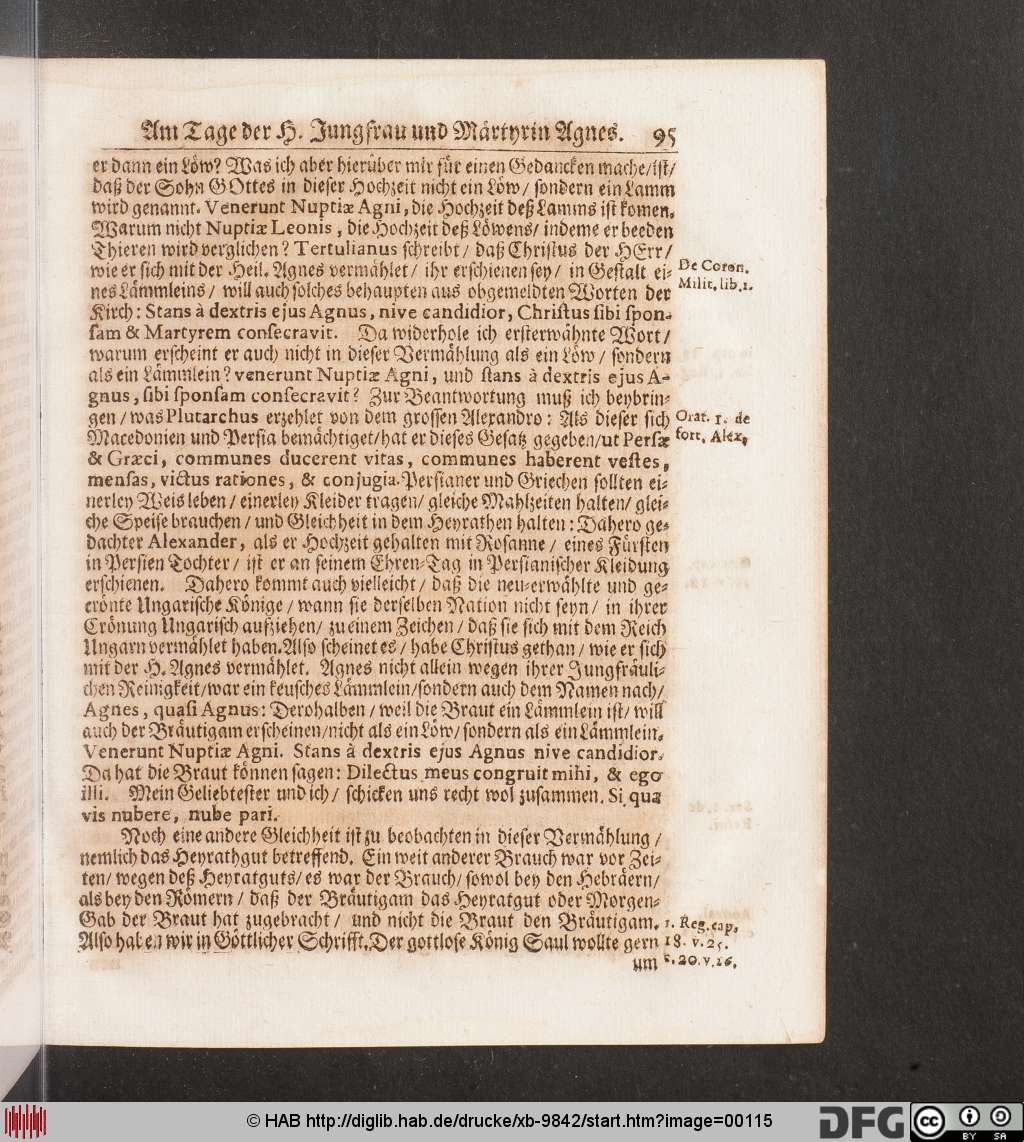 Am Tage der H. Jungfrau und Märtyrin Agnes. 95
er dann ein Löw? Was ich aber hierüber mir für einen Gedancken mache/ist/
daß der Sohn GOttes in dieser Hochzeit nicht ein Löw/ sondern ein Lamm
wird genannt. Venerunt Nuptiæ Agni, die Hochzeit deß Lamms ist komen.
Warum nicht Nuptiæ Leonis, die Hochzeit deß Löwens/ indeme er beeden
Thieren wird verglichen? Tertulianus schreibt/ daß Christus der HErr/
wie er sich mit der Heil. Agnes vermählet/ ihr erschienen sey/ in Gestalt ei-
De Coron.
nes Lämmleins/ will auch solches behaupten aus obgemeldten Worten der
Milit. lib. 1.
Kirch: Stans à dextris ejus Agnus, nive candidior, Christus sibi spon-
sam & Martyrem consecravit. Da widerhole ich ersterwähnte Wort/
warum erscheint er auch nicht in dieser Vermählung als ein Löw/ sondern
als ein Lämmlein? venerunt Nuptiæ Agni, und stans à dextris ejus A-
gnus, sibi sponsam consecravit? Zur Beantwortung muß ich beybrin-
gen/ was Plutarchus erzehlet von dem grossen Alexandro: Als dieser sich
Orat. 1. de
Macedonien und Persia bemächtiget/hat er dieses Gesatz gegeben/ut Persæ
fort. Alex.
& Græci, communes ducerent vitas, communes haberent vestes,
mensas, victus rationes, & conjugia. Persianer und Griechen sollten ei-
nerley Weis leben/ einerley Kleider tragen/ gleiche Mahlzeiten halten/ glei-
che Speise brauchen/ und Gleichheit in dem Heyrathen halten: Dahero ge-
dachter Alexander, als er Hochzeit gehalten mit Rosanne/ eines Fürsten
in Persien Tochter/ ist er an seinem Ehren-Tag in Persianischer Kleidung
erschienen. Dahero kommt auch vielleicht/ daß die neu-erwählte und ge-
erönte Ungarische Könige/ wann sie derselben Nation nicht seyn/ in ihrer
Crönung Ungarisch aufziehen/ zu einem Zeichen/ daß sie sich mit dem Reich
Ungarn vermählet haben. Also scheinet es/ habe Christus gethan/ wie er sich
mit der H. Agnes vermählet. Agnes nicht allein wegen ihrer Jungfräuli-
chen Reinigkeit/war ein keusches Lämmlein/sondern auch dem Namen nach/
Agnes, quasi Agnus: Derohalben/ weil die Braut ein Lämmlein ist/ will
auch der Bräutigam erscheinen/nicht als ein Löw/ sondern als ein Lämmlein.
Venerunt Nuptiæ Agni. Stans à dextris ejus Agnus nive candidior.
Da hat die Braut können sagen: Dilectus meus congruit mihi, & ego
illi. Mein Geliebtester und ich/ schicken uns recht wol zusammen. Si qua
vis nubere, nube pari.
Noch eine andere Gleichheit ist zu beobachten in dieser Vermählung/
nemlich das Heyrathgut betreffend. Ein weit anderer Brauch war vor Zei-
ten/ wegen deß Heyratguts/ es war der Brauch/ sowol bey den Hebräern/
als bey den Römern/ daß der Bräutigam das Heyratgut oder Morgen-
Gab der Braut hat zugebracht/ und nicht die Braut den Bräutigam.
1. Reg. cap.
Also haben wir in Göttlicher Schrifft. Der gottlose König Saul wollte gern
18. v. 25.
um
c. 20. v. 16.
© HAB http://diglib.hab.de/drucke/xb-9842/start.htm?image=00115
DFG
cc
BY SA